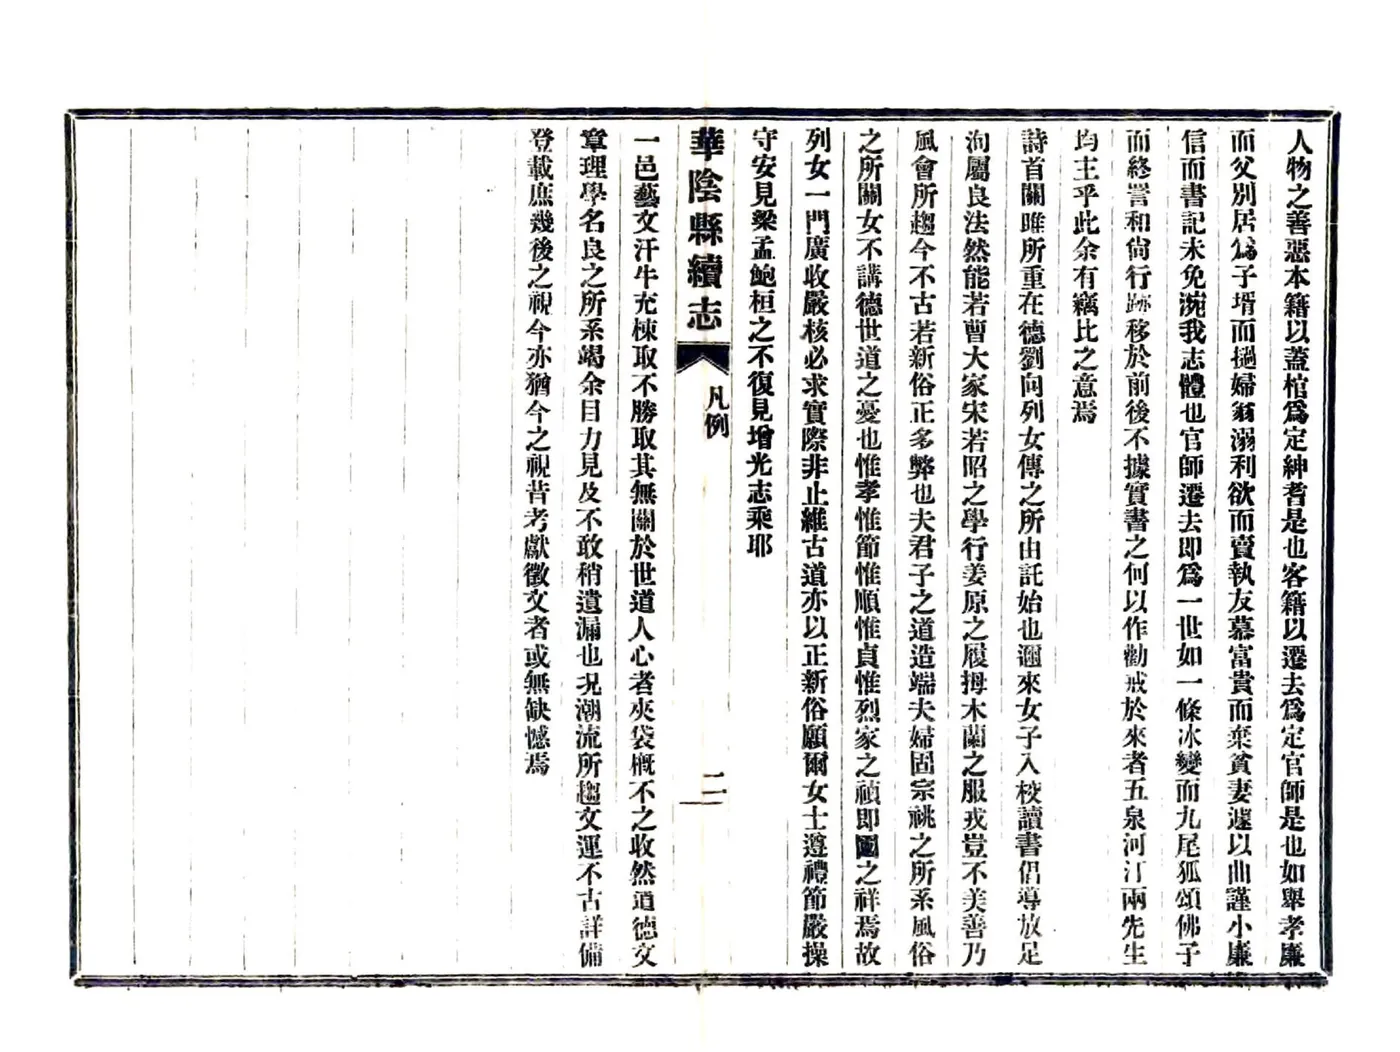 人物之善惡本籍以蓋棺爲定紳耆是也客籍以遷去爲定官師是也如舉孝廉
而父別居爲子壻而撾婦翁溺利欲而賣執友慕富貴而棄貧妻遽以曲謹小廉
信而書記未免涴我志體也官師遷去即爲一世如一條冰變而九尾狐頌佛子
而終詈和尙行跡移於前後不據實書之何以作勸戒於來者五泉河汀兩先生
均主乎此余有竊比之意焉
詩首關雎所重在德劉向列女傳之所由託始也邇來女子入校讀書倡導放足
洵屬良法然能若曹大家宋若昭之學行姜原之履拇木蘭之服戎豈不美善乃
風會所趨今不古若新俗正多弊也夫君子之道造端夫婦固宗祧之所系風俗
之所關女不講德世道之憂也惟孝惟節惟順惟貞惟烈家之禎即國之祥焉故
列女一門廣收嚴核必求實際非止維古道亦以正新俗願爾女士遵禮節嚴操
守安見梁孟鮑桓之不復見增光志乘耶
華陰縣續志
凡例
二
一邑藝文汗牛充棟取不勝取其無關於世道人心者夾袋概不之收然道德文
章理學名良之所系竭余目力見及不敢稍遺漏也況潮流所趨文運不古詳備
登載庶幾後之視今亦猶今之視昔考獻徵文者或無缺憾焉